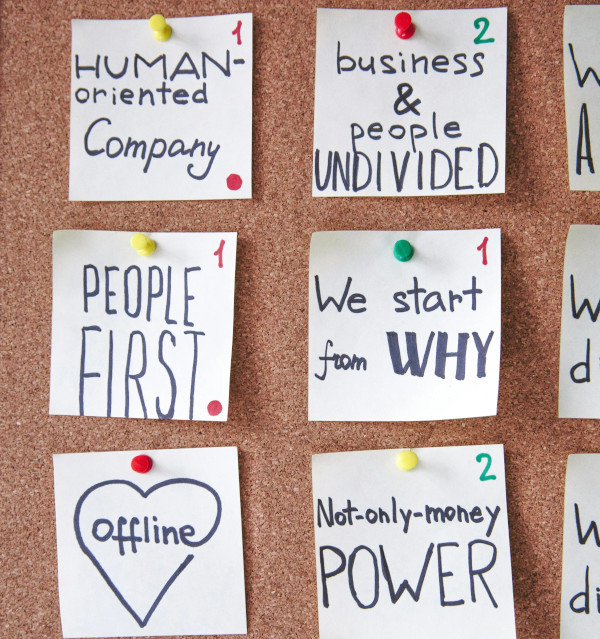 1
HUMAN-
oriented
Company
2
business
&
people
UNDIVIDED
1
PEOPLE
FIRST
1
We start
from WHY
offline
2
Not-only-money
POWER